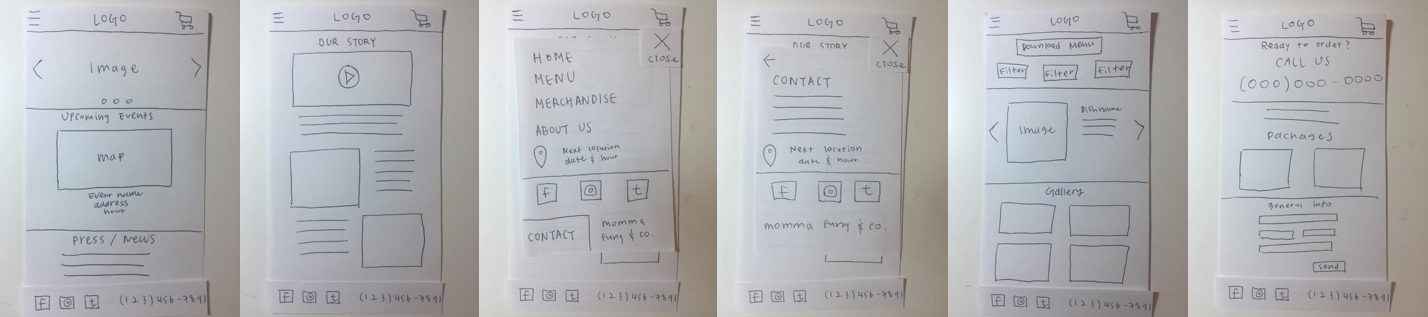 LOGO
Image
Upcoming Events
map
Event name
address
hour
PRESS / NEWS
f t (123)456-7891
LOGO
OUR STORY
f t (123)456-7891
LOGO
close
HOME
MENU
MERCHANDISE
ABOUT US
Next location
date & hour
f t
CONTACT
momma
Fung & co.
f t (123)456-7891
LOGO
OUR STORY
close
CONTACT
Next location
date & hour
f t
momma Fung & co.
f t (123)456-7891
LOGO
Download Menu
Filter Filter Filter
Image
Dish name
Gallery
f t (123)456-7891
LOGO
Ready to order?
CALL US
(000)000-0000
Packages
general info
Send
f t (123)456-7891